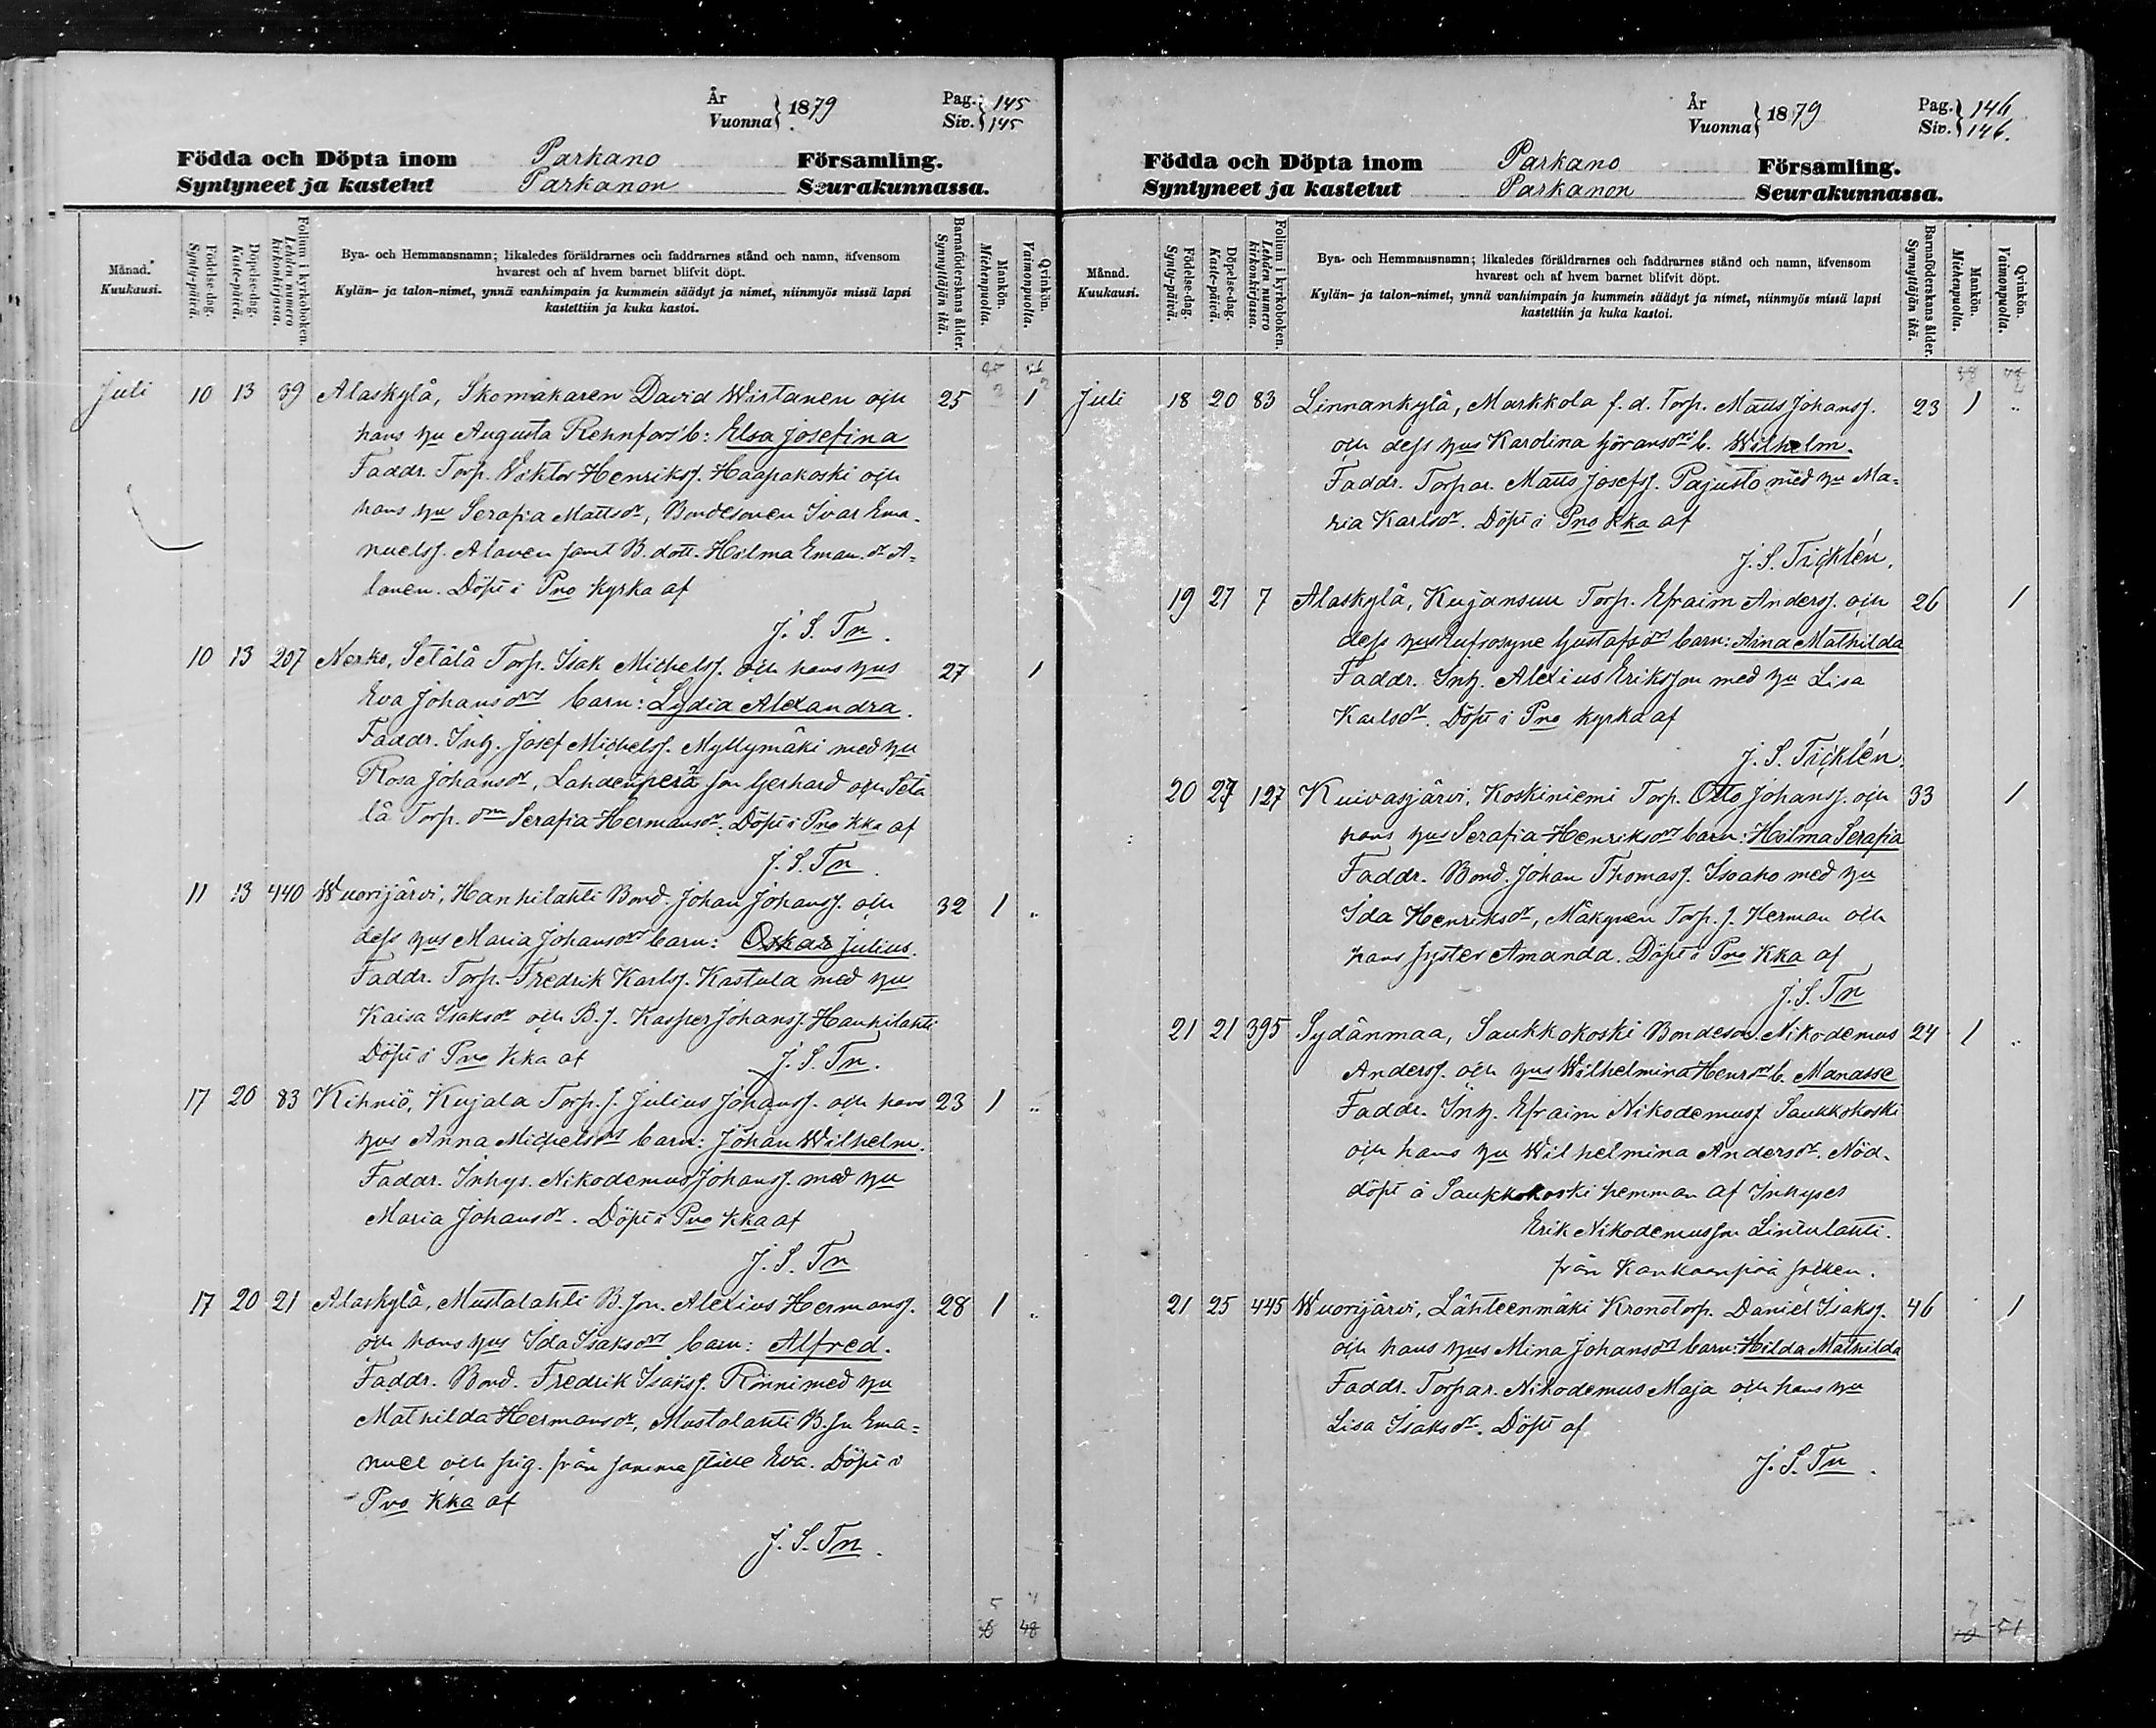 År
Vuonna } 1879
Pag. } 145
Siv. } 145
Födda och Döpta inom Parkano Församling.
Syntyneet ja kastetut Parkanon Seurakunnassa.
Månad.
Kuukausi.
Födelse-dag.
Synty-päivä.
Döpelse-dag.
Kaste-päivä.
Folium i kyrkoboken.
Lehden numero kirkonkirjassa.
Bya- och Hemmansnamn; likaledes föräldrarnes och faddrarnes stånd och namn, äfvensom
hvarest och af hvem barnet blifvit döpt.
Kylän- ja talon-nimet, ynnä vanhimpain ja kummein säädyt ja nimet, niinmyös missä lapsi
kastettiin ja kuka kastoi.
Barnaföderskans ålder.
Synnyttäjän ikä.
Mankön.
Miehenpuolla.
Qvinkön.
Vaimonpuolla.
Juli 10 13 39 Alaskylä, Skomakaren David Wirtanen och 25 1
hans hu Augusta Rehnfors b: Elsa Josefina
Faddr. Torp. Wiktor Henriks. Haapakoski och
hans hu Serafia Mattsdr, Bondesonen Ivar Ema-
nuels. Alanen samt B. dott. Hilma Eman. dr A-
lanen. Döpt i Pno kyrka af
J. S. Tn.
10 13 207 Nerko, Setälä Torp. Isak Michels. och hans hus 27 1
Eva Johansdrs barn: Lydia Alexandra.
Faddr. Inh. Josef Michels. Myllymäki med hu
Rosa Johansdr, Lahdenperä son Gerhard och Setä
lä Torp. dm Serafia Hermansdr. Döpt i Pno kka af
J. S. Tn.
11 13 440 Wuorijärvi, Hanhilahti Bond. Johan Johans. och 32 1 „
dess hus Maria Johansdrs barn: Oskar Julius.
Faddr. Torp. Fredrik Karls. Kastula med hu
Kaisa Isaksdr och B. s. Kasper Johans. Hanhilahti
Döpt i Pno kka af J. S. Tn.
17 20 83 Kihniö, Kujala Torp. s. Julius Johans. och hans 23 1 „
hus Anna Michelsdrs barn: Johan Wilhelm.
Faddr. Inhys. Nikodemus Johans. med hu
Maria Johansdr. Döpt i Pno kka af
J. S. Tn
17 20 21 Alaskylä, Mustalahti B. son. Alexius Hermans. 28 1 „
och hans hus Ida Isaksdrs barn: Alfred.
Faddr. Bond. Fredrik Isaks. Rönni med hu
Mathilda Hermansdr, Mustalahti B. sn Ema-
nuel och pig. från samma ställe Eva. Döpt i
Pno kka af
J. S. Tn.
År
Vuonna } 1879
Pag. } 146
Siv. } 146.
Födda och Döpta inom Parkano Församling.
Syntyneet ja kastetut Parkanon Seurakunnassa.
Månad.
Kuukausi.
Födelse-dag.
Synty-päivä.
Döpelse-dag.
Kaste-päivä.
Folium i kyrkoboken.
Lehden numero kirkonkirjassa.
Bya- och Hemmansnamn; likaledes föräldrarnes och faddrarnes stånd och namn, äfvensom
hvarest och af hvem barnet blifvit döpt.
Kylän- ja talon-nimet, ynnä vanhimpain ja kummein säädyt ja nimet, niinmyös missä lapsi
kastettiin ja kuka kastoi.
Barnaföderskans ålder.
Synnyttäjän ikä.
Mankön.
Miehenpuolla.
Qvinkön.
Vaimonpuolla.
Juli 18 20 83 Linnankylä, Markkola f. d. Torp. Matts Johans. 23 1 „
och dess hus Karolina Göransdrs b. Wilhelm.
Faddr. Torpar. Matts Josefs. Pajusto med hu Ma-
ria Karlsdr. Döpt i Pno kka af
J. S. Ticklén.
19 27 7 Alaskylä, Kujansuu Torp. Efraim Anders. och 26 1
dess hus Eufrosyne Gustafsdrs barn: Aina Mathilda
Faddr. Inh. Alexius Eriksson med hu Lisa
Karlsdr. Döpt i Pno kyrka af
J. S. Ticklén.
20 27 127 Kuivasjärvi, Koskiniemi Torp. Otto Johans. och 33 1
hans hus Serafia Henriksdrs barn: Hilma Serafia
Faddr. Bond. Johan Thomas. Isoaho med hu
Ida Henriksdr, Mäkynen Torp. s. Herman och
hans syster Amanda. Döpt i Pno kka af
J. S. Tn
21 21 395 Sydänmaa, Saukkokoski Bondeson Nikodemus 24 1 „
Anders. och hus Wilhelmina Henrdrs b. Manasse
Faddr. Inh. Efraim Nikodemus. Saukkokoski
och hans hu Wilhelmina Andersdr. Nöd-
döpt å Saukkokoski hemman af Inhyses
Erik Nikodemusson Lintulahti.
från Kankaanpää socken.
21 25 445 Wuorijärvi, Lähteenmäki Kronotorp. Daniel Isaks. 46 1
och hans hus Mina Johansdrs barn: Hilda Mathilda
Faddr. Torpar. Nikodemus Maja och hans hu
Lisa Isaksdr. Döpt af
J. S. Tn.